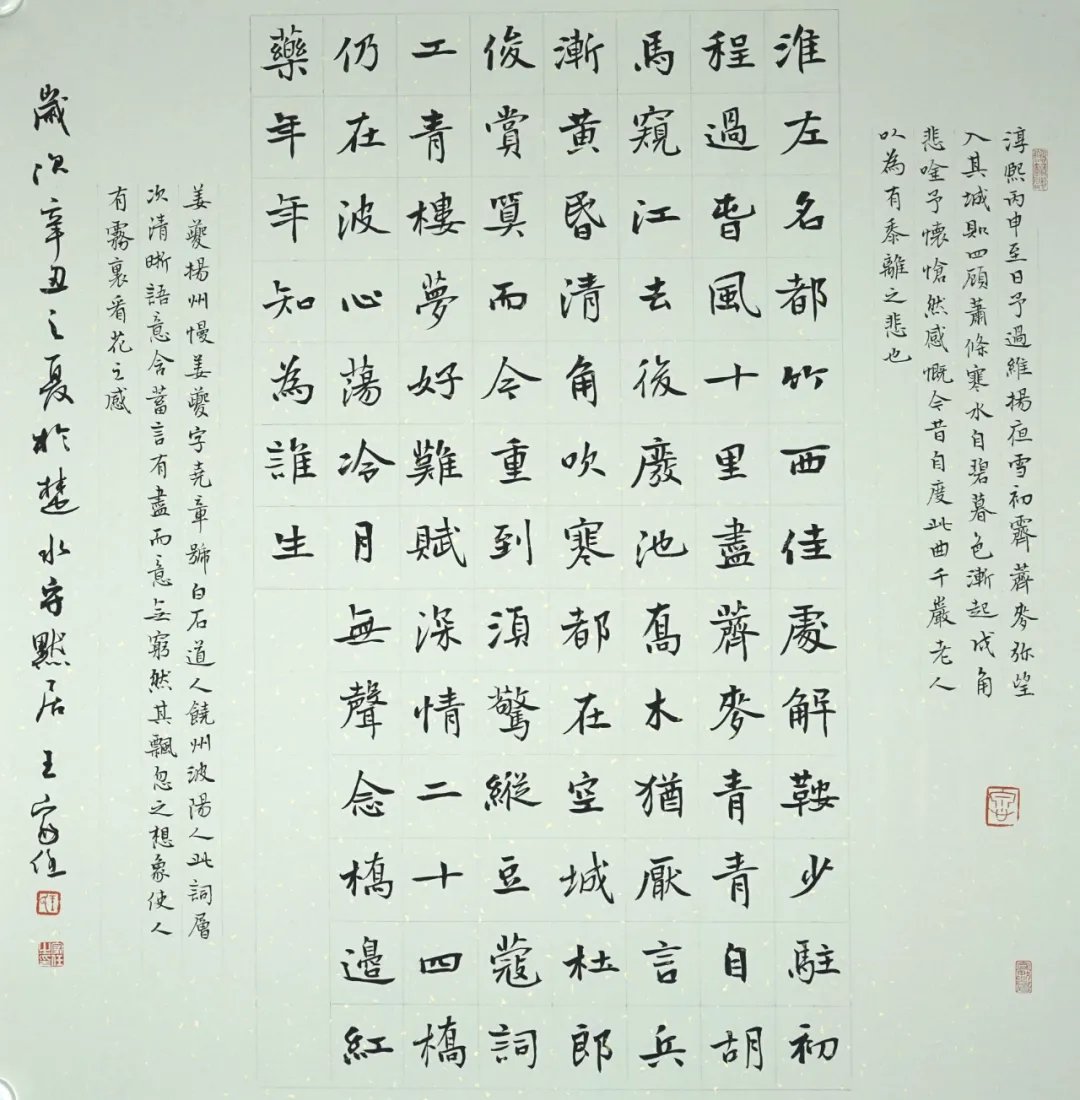 淳熙丙申至日予過維揚夜雪初霽薺麥弥望
入其城則四顧蕭條寒水自碧暮色漸起戍角
悲唫予懷愴然感慨今昔自度此曲千巖老人
以為有黍離之悲也
淮左名都竹西佳處解鞍少駐初
程過旾風十里盡薺麥青青自胡
馬窺江去後廢池喬木猶厭言兵
漸黃昏清角吹寒都在空城杜郎
俊賞算而今重到須驚縱豆蔻詞
工青樓夢好難賦深情二十四橋
仍在波心蕩冷月無聲念橋邊紅
藥年年知為誰生
姜夔揚州慢姜夔字堯章號白石道人饒州波陽人此詞層
次清晰語意含蓄言有盡而意无窮然其飄忽之想象使人
有霧裏看花之感
歲次辛丑之夏於楚水守默居王家任